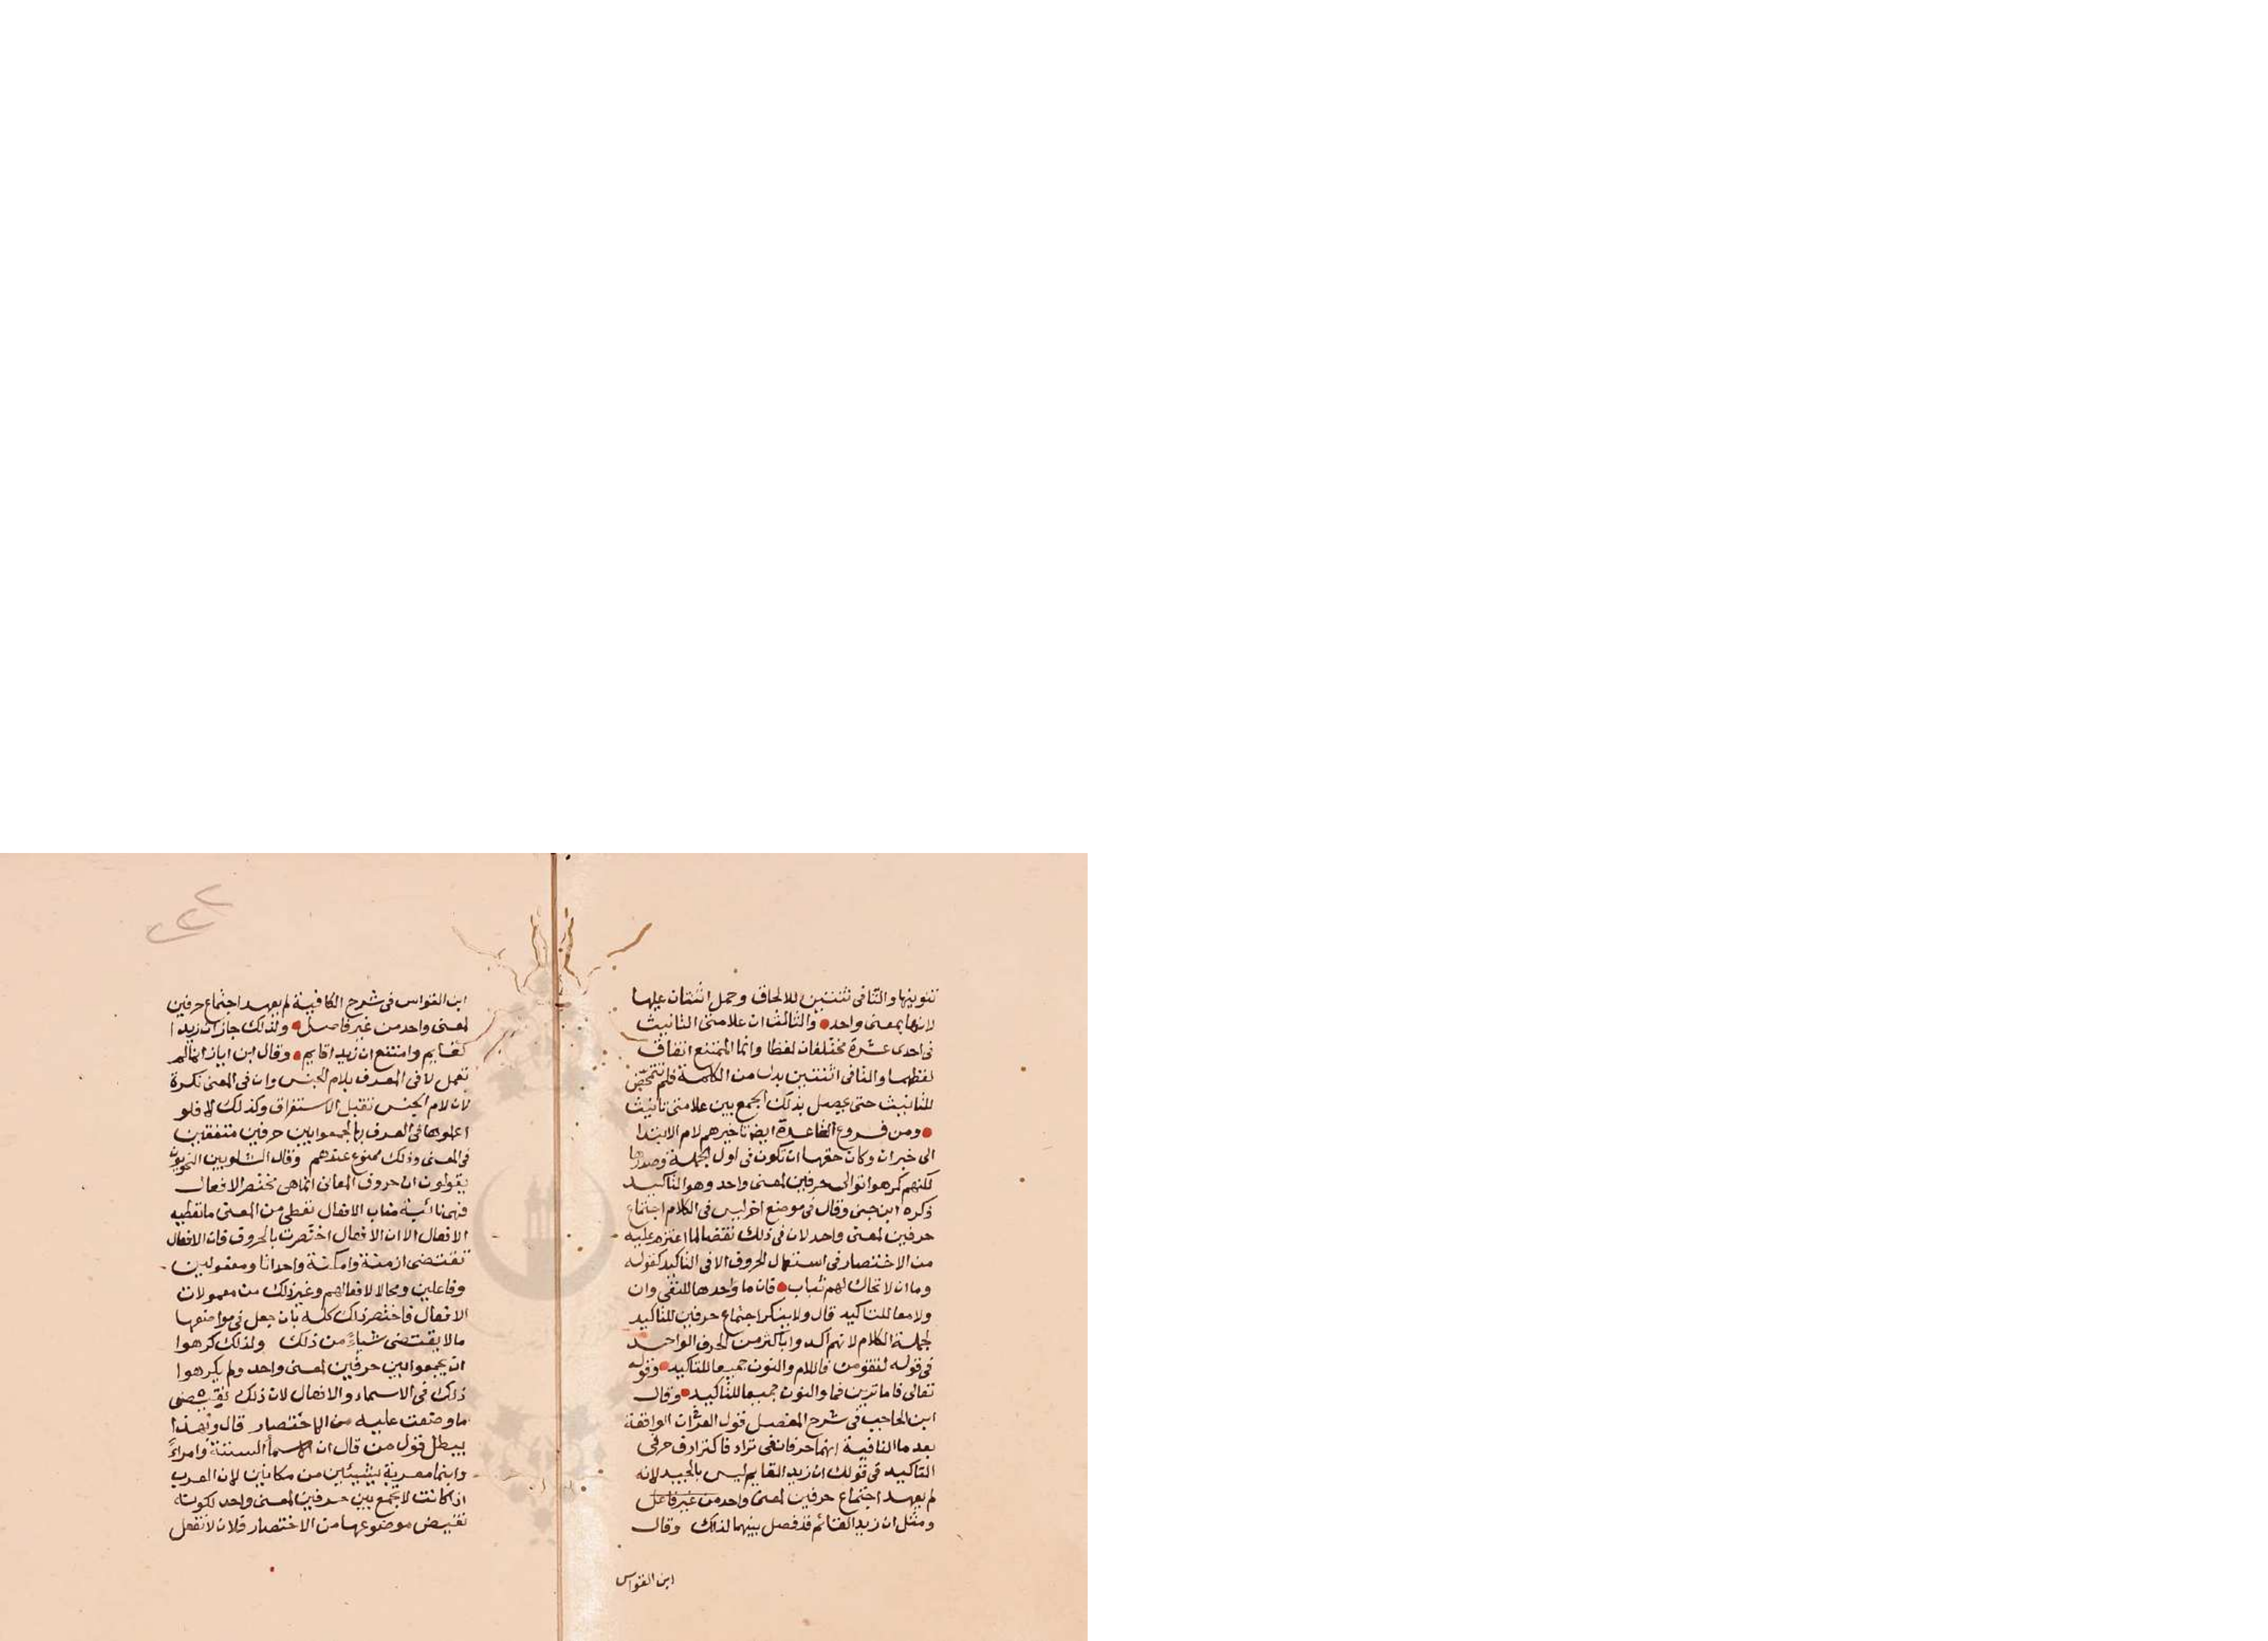 تنوينها والتا فى ثنتين للالحاق وحمل اثنتان عليها
لانها بمعنى واحد والثالث ان علامتى التانيث
فى احدى عشرة مختلفان لفظا وانما الممتنع اتفاق
لفظهما والتا فى اثنتين بدل من الكلمة فلم تتمحض
للتانيث حتى يحصل بذلك الجمع بين علامتى تانيث
ومن فروع القاعدة ايضا تاخيرهم لام الابتدا
الى خبر ان وكان حقها ان تكون فى اول الجملة وصدرها
لكنهم كرهوا توالى حرفين لمعنى واحد وهو التاكيد
ذكره ابن جنى وقال فى موضع اخر ليس فى الكلام اجتماع
حرفين لمعنى واحد لان فى ذلك نقضا لما اعتزم عليه
من الاختصار فى استعمال الحروف الا فى التاكيد كقوله
وما ان لا تحاك لهم ثياب فان ما وحدها للنفى وان
ولا معا للتاكيد قال ولا ينكر اجتماع حرفين للتاكيد
لجملة الكلام لانهم اكدوا باكثر من الحرف الواحد
فى قوله لتقومن فاللام والنون جميعا للتاكيد وقوله
تعالى فاما ترين فما والنون جميعا للتاكيد وقال
ابن الحاجب فى شرح المفصل قول الفرا ان الواقعة
بعد ما النافية انهما حرفا نفى ترادفا كترادف حرفى
التاكيد فى قولك ان زيد القايم ليس بالجيد لانه
لم يعهد اجتماع حرفين لمعنى واحد من غير فاصل
ومثل ان زيد القائم قد فصل بينهما لذلك وقال
ابن القواس
٢٢
ابن القواس فى شرح الكافية لم يعهد اجتماع حرفين
لمعنى واحد من غير فاصل ولذلك جاز ان زيدا
لقايم وامتنع ان زيدا قايم وقال ابن اياز انما لم
تعمل لا فى المعرف بلام الجنس وان فى المعنى نكرة
لان لام الجنس تقبل الاستغراق وكذلك لا فلو
اعلوها فى المعرف بها لجمعوا بين حرفين متفقين
فى المعنى وذلك ممنوع عندهم وقال الشلوبين النحويون
يقولون ان حروف المعانى انما هى مختصر الافعال
فهى نائبة مناب الافعال تعطى من المعنى ما تعطيه
الافعال الا ان الافعال اختصرت بالحروف فان الافعال
تقتضى ازمنة وامكنة واحداثا ومفعولين
وفاعلين ومحالا لافعالهم وغير ذلك من معمولات
الافعال فاختصر ذلك كله بان جعل فى مواضعها
ما لا يقتضى شياء من ذلك ولذلك كرهوا
ان يجمعوا بين حرفين لمعنى واحد ولم يكرهوا
ذلك فى الاسماء والافعال لان ذلك نقيض
ما وضعت عليه من الاختصار قال وبهذا
يبطل قول من قال ان الاسما الستة وامراء
وابنما معربة بشيئين من مكانين لان العرب
اذا كانت لا تجمع بين حرفين لمعنى واحد لكونه
نقيض موضوعها من الاختصار فلان لا تفعل